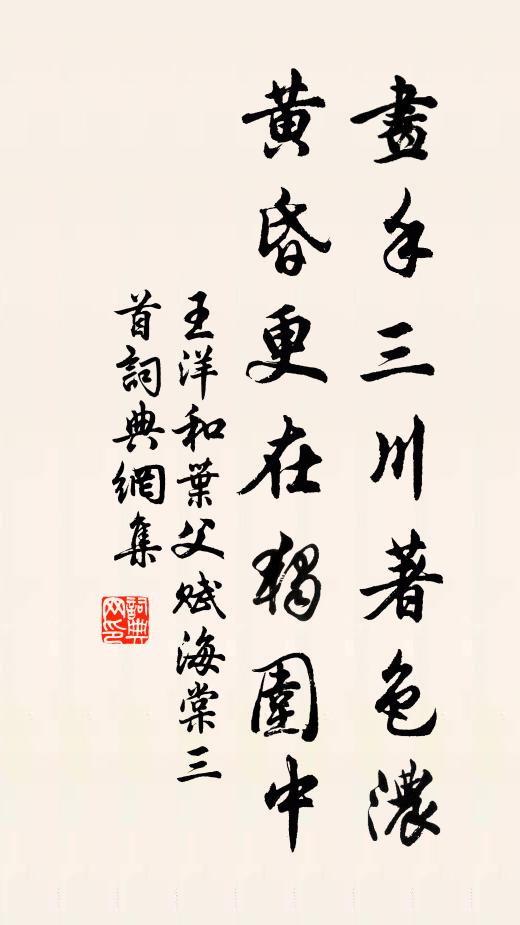 畫手三川著色濃
黃昏更在獨圍中
王洋和葉父賦海棠三
首詞典網集
詞典
网印